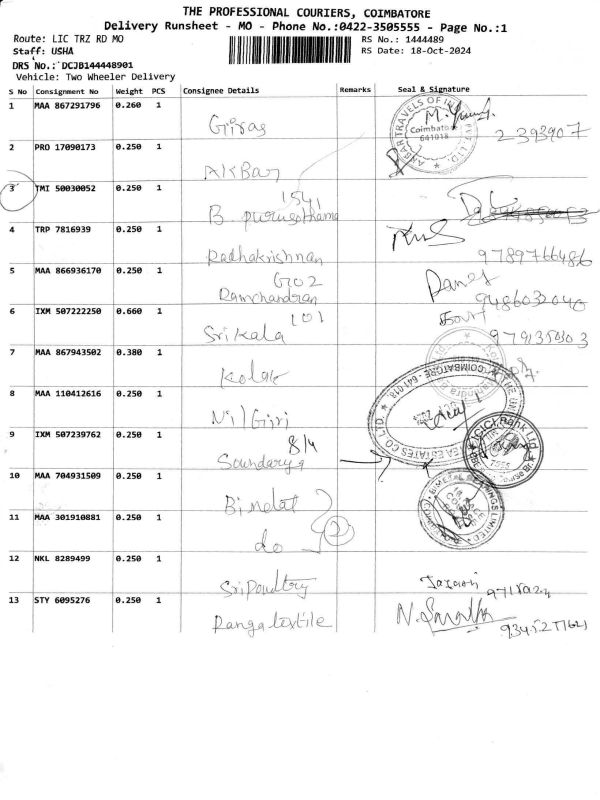 THE PROFESSIONAL COURIERS, COIMBATORE
Delivery Runsheet - MO - Phone No.:0422-3505555 - Page No.:1
Route: LIC TRZ RD MO
RS No.: 1444489
Staff: USHA
RS Date: 18-Oct-2024
DRS No.: DCJB144448901
Vehicle: Two Wheeler Delivery
S No Consignment No Weight PCS Consignee Details Remarks Seal & Signature
1 MAA 867291796 0.260 1
2393907
2 PRO 17090173 0.250 1 AKBar
3 TMI 50030052 0.250 1 1541
4 TRP 7816939 0.250 1 Radhakrishnan 9789766486
5 MAA 866936170 0.250 1 G02
Ramchandran 9486032040
6 IXM 507222250 0.660 1 101
Srikala
7 MAA 867943502 0.380 1
8 MAA 110412616 0.250 1 Nilgiri
9 IXM 507239762 0.250 1 8/4
Soundarya
10 MAA 704931509 0.250 1
11 MAA 301910881 0.250 1 do 2
12 NKL 8289499 0.250 1 Sri Poultry
13 STY 6095276 0.250 1 Ranga textile
ANGAR TRAVELS OF
Coimbatore
641018
ICICI Bank Ltd
COIMBATORE - 641 018